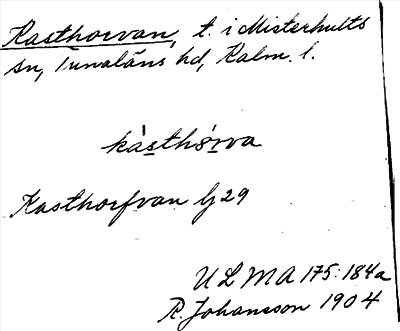 Kasthorvan, t. i Misterhults
sn, Tunaläns hd, Kalm. l.
kàsthórva
Kasthorfvan Lj 29
ULMA 175:184a
R. Johansson 1904